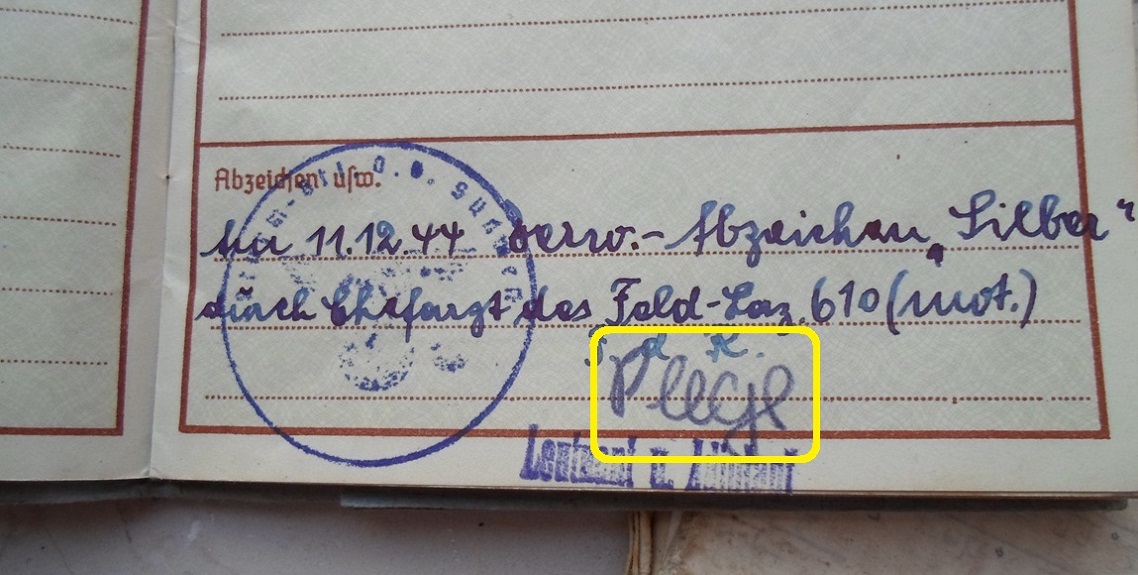 Abzeichen usw.
Am 11.12.44 Verw.-Abzeichen „Silber“
durch Chefarzt des Feld-Laz. 610 (mot.)
F. d. R.
Leutnant u. Adjutant